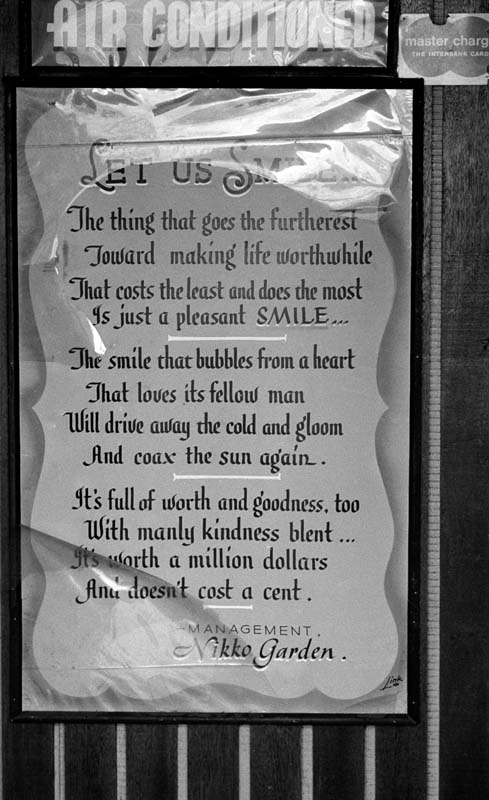 AIR CONDITIONED
master charg
THE INTERBANK CARD
LET US SMILE...
The thing that goes the furtherest
Toward making life worthwhile
That costs the least and does the most
Is just a pleasant SMILE...
The smile that bubbles from a heart
That loves its fellow man
Will drive away the cold and gloom
And coax the sun again.
It's full of worth and goodness, too
With manly kindness blent...
It's worth a million dollars
And doesn't cost a cent.
-MANAGEMENT,
Nikko Garden.
Link